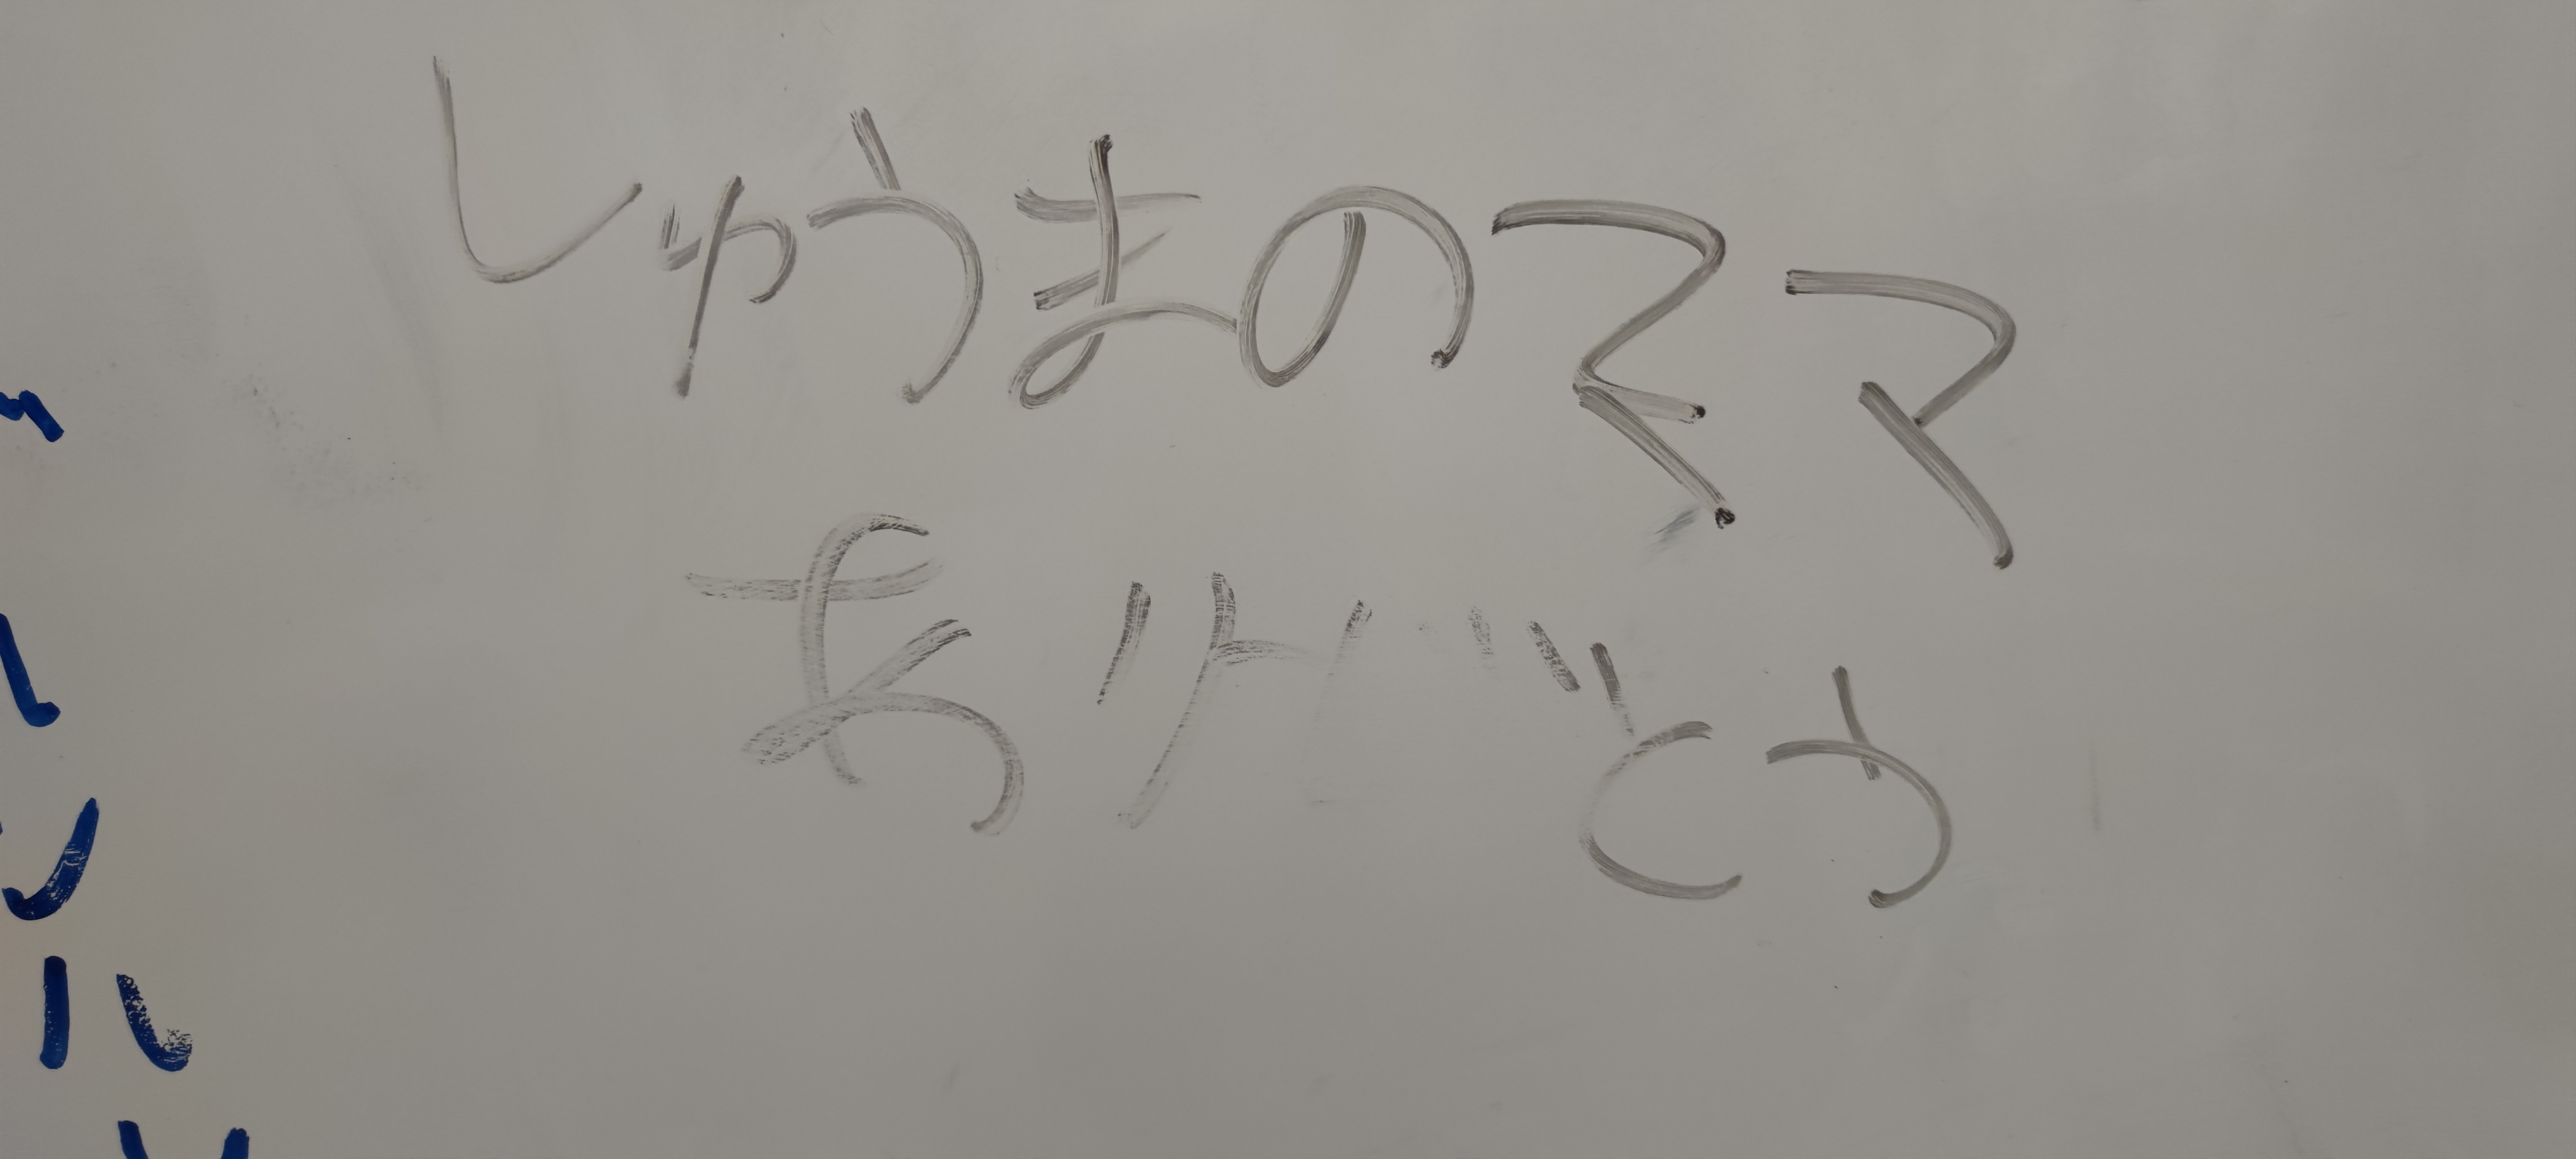 しゅうまのママ
ありがとう